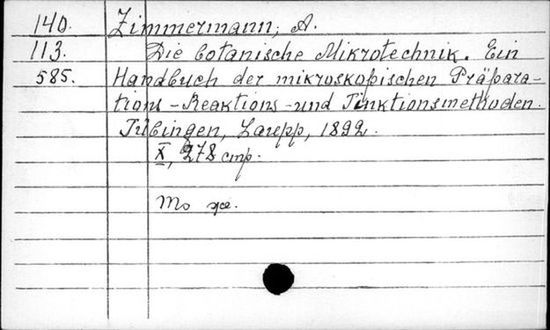 140. Zimmermann, A.
113. Die botanische Mikrotechnik. Ein
585. Handbuch der mikroskopischen Präpara-
tions-Reaktions-und Tinktionsmethoden.
Tübingen, Laupp, 1892.
X, 278 стр.